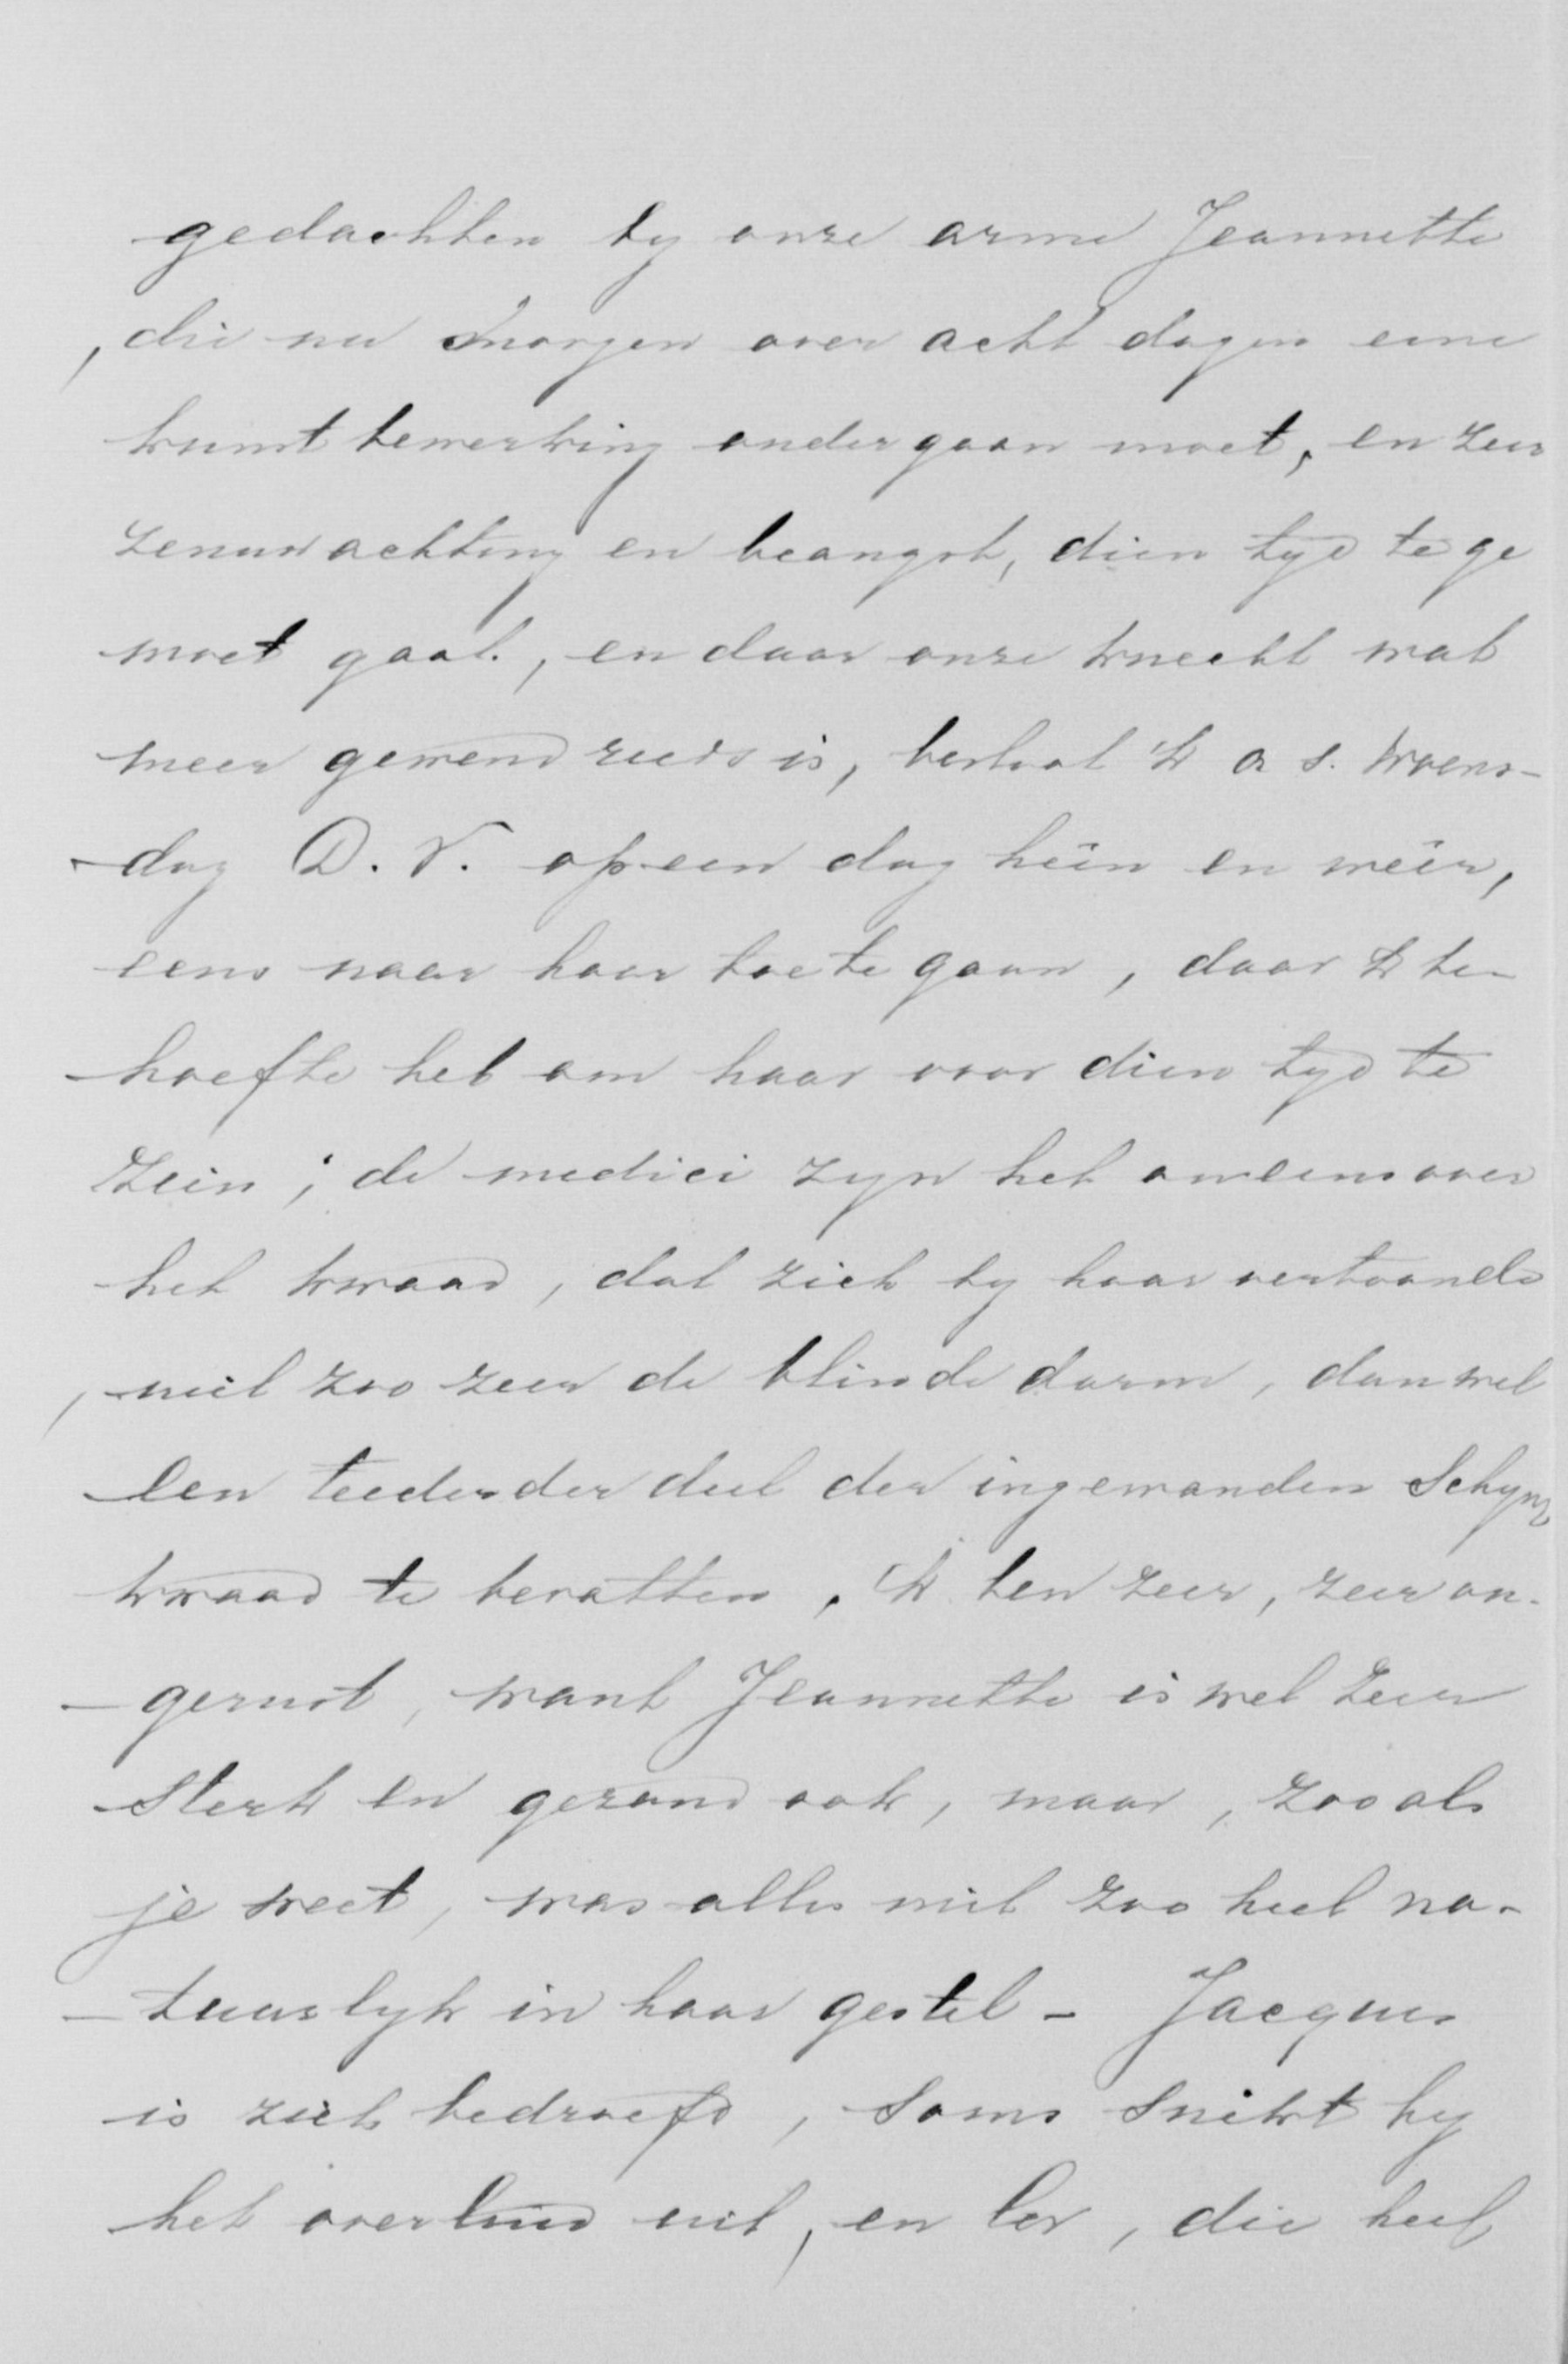 gedachten by onze arme Jeannette
, die nu morgen over acht dagen eene
kunstbewerking ondergaan moet, en zeer
zenuwachting en beangst, dien tyd te ge
moet gaat, en daar onze knecht wat
meer gewend reeds is, besloot 'k a s. Woens-
dag D. V. op een dag heën en weêr,
eens naar haar toe te gaan, daar 'k be-
hoefte heb om haar voor dien tyd te
zien; de medici zyn het oneens over
het kwaad, dat zich by haar vertoonde
, niet zoo zeer de blinde darm, dan wel
een teederder deel der ingewanden schynt
kwaad te bevatten, 'k ben zeer, zeer on-
- gerust, want Jeannette is wel zeer
sterk en gezond ook, maar, zooals
je weet, was alles niet zoo heel na-
- tuurlyk in haar gestel - Jacques
is ziek bedroefd, soms snikt hy
het overluid uit, en Cor, die heel